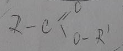 R-C
O
O-R'